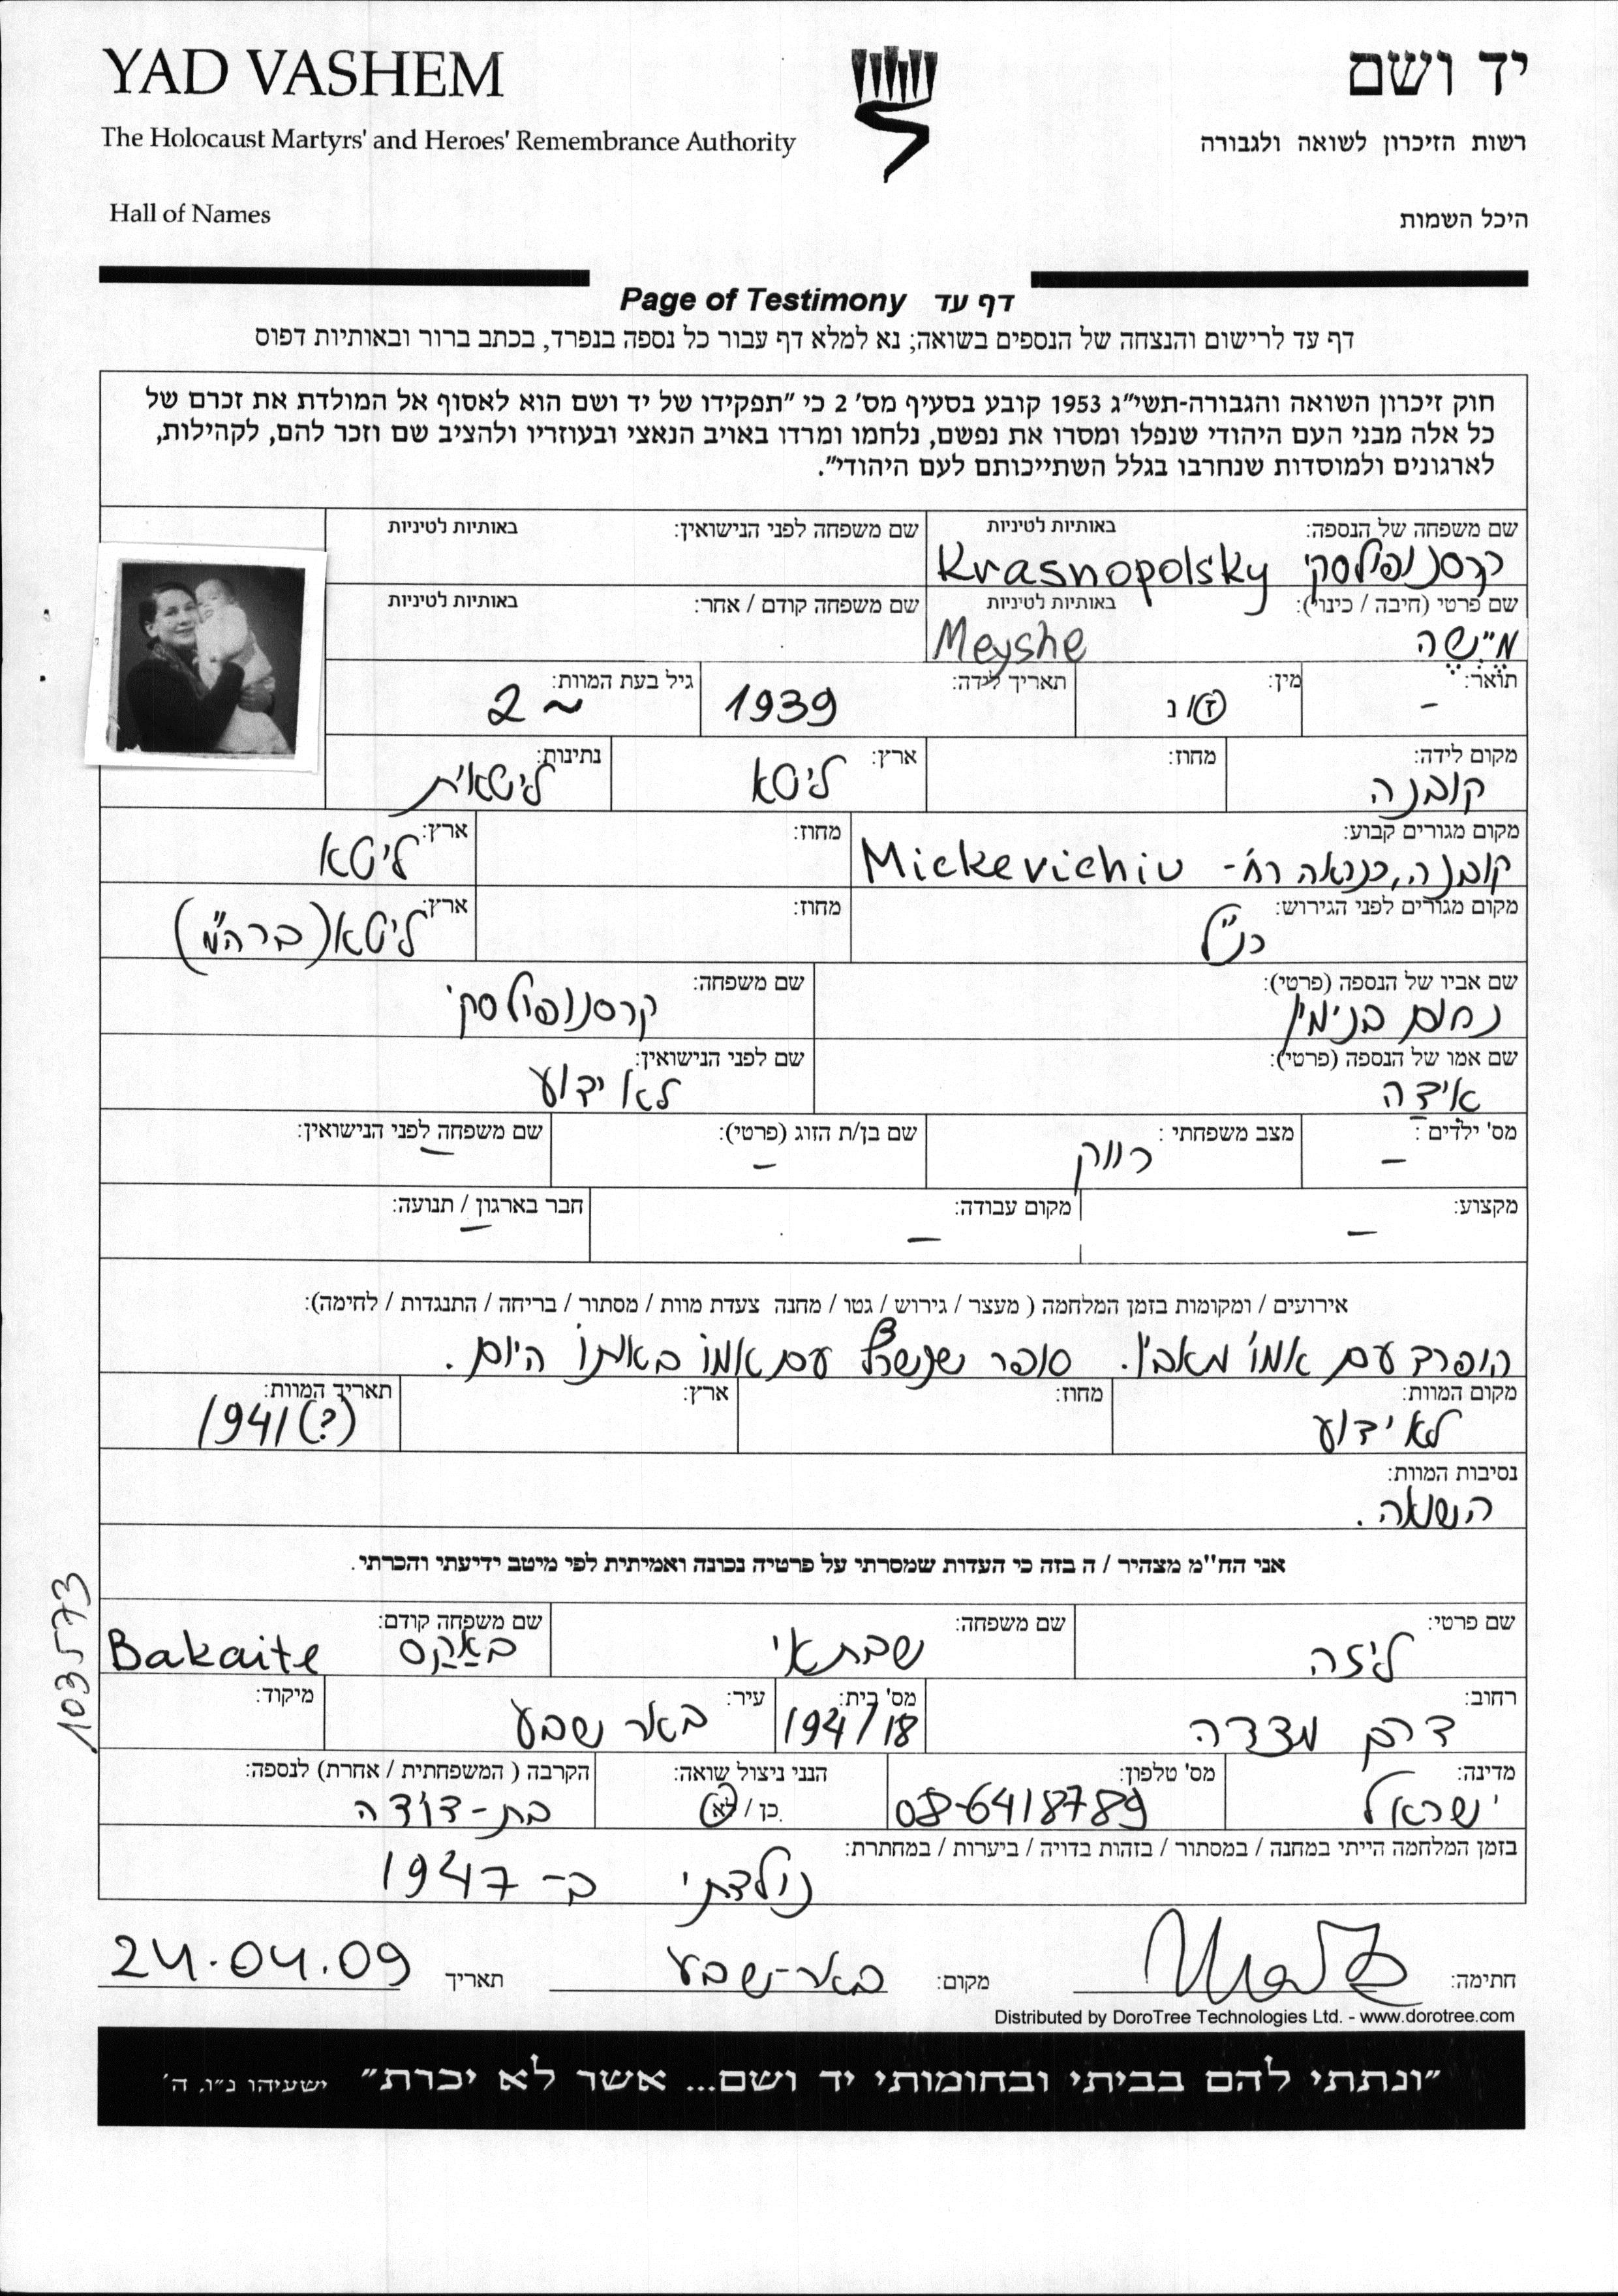 YAD VASHEM
יד ושם
The Holocaust Martyrs' and Heroes' Remembrance Authority
רשות הזיכרון לשואה ולגבורה
Hall of Names
היכל השמות
Page of Testimony דף עד
דף עד לרישום והנצחה של הנספים בשואה; נא למלא דף עבור כל נספה בנפרד, בכתב ברור ובאותיות דפוס
חוק זיכרון השואה והגבורה-תשי"ג 1953 קובע בסעיף מס' 2 כי "תפקידו של יד ושם הוא לאסוף אל המולדת את זכרם של
כל אלה מבני העם היהודי שנפלו ומסרו את נפשם, נלחמו ומרדו באויב הנאצי ובעוזריו ולהציב שם וזכר להם, לקהילות,
לארגונים ולמוסדות שנחרבו בגלל השתייכותם לעם היהודי".
שם משפחה של הנספה: באותיות לטיניות שם משפחה לפני הנישואין: באותיות לטיניות
קרסנופולסקי Krasnopolsky
שם פרטי (חיבה / כינוי): באותיות לטיניות שם משפחה קודם / אחר: באותיות לטיניות
מיישה Meyshe
תואר: מין: תאריך לידה: גיל בעת המוות:
- ז / נ 1939 ~ 2
מקום לידה: מחוז: ארץ: נתינות:
קובנה ליטא ליטאית
מקום מגורים קבוע: מחוז: ארץ:
קובנה, כנראה רח'- Mickevichiu ליטא
מקום מגורים לפני הגירוש: מחוז: ארץ:
כנ"ל ליטא (ברה"מ)
שם אביו של הנספה (פרטי): שם משפחה:
נחום בנימין קרסנופולסקי
שם אמו של הנספה (פרטי): שם לפני הנישואין:
אידה לא ידוע
מס' ילדים: מצב משפחתי: שם בן/ת הזוג (פרטי): שם משפחה לפני הנישואין:
- רווק - -
מקצוע: מקום עבודה: חבר בארגון / תנועה:
- - -
אירועים / ומקומות בזמן המלחמה ( מעצר / גירוש / גטו / מחנה צעדת מוות / מסתור / בריחה / התנגדות / לחימה):
הופרד עם אמו מאביו. סופר שנשרף עם אמו באותו היום.
מקום המוות: מחוז: ארץ: תאריך המוות:
לא ידוע 1941(?)
נסיבות המוות:
השואה.
אני הח"מ מצהיר / ה בזה כי העדות שמסרתי על פרטיה נכונה ואמיתית לפי מיטב ידיעתי והכרתי.
שם פרטי: שם משפחה: שם משפחה קודם:
ליזה שבתאי באקס Bakaite
רחוב: מס' בית: עיר: מיקוד:
דרך מצדה 194/18 באר שבע
מדינה: מס' טלפון: הנני ניצול שואה: הקרבה ( המשפחתית / אחרת) לנספה:
ישראל 08-6418789 כן / לא בת-דודה
בזמן המלחמה הייתי במחנה / במסתור / בזהות בדויה / ביערות / במחתרת:
נולדתי ב- 1947
חתימה: מקום: באר-שבע תאריך 24.04.09
Distributed by DoroTree Technologies Ltd. - www.dorotree.com
"ונתתי להם בביתי ובחומותי יד ושם... אשר לא יכרת" ישעיהו נ"ו, ה'
103573